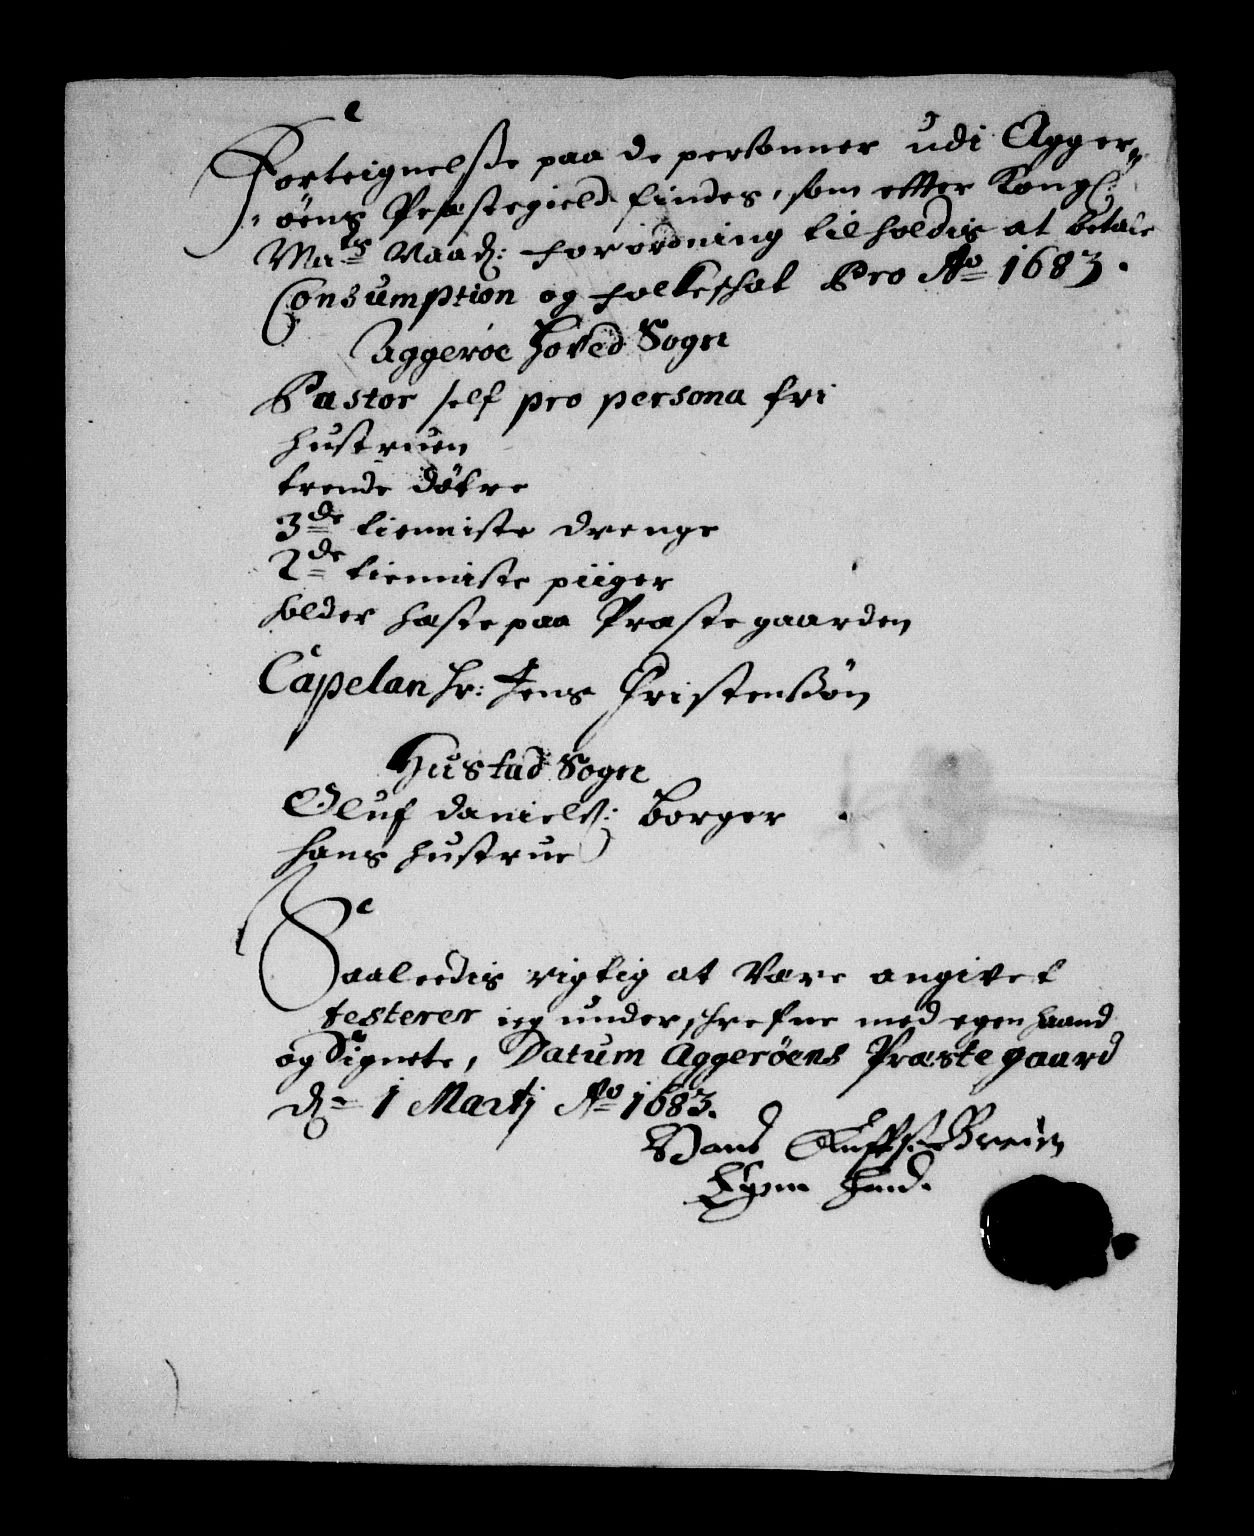 Forteignelsße paa de personner udi Agger„
„öens Præstegield findes, som effter Kongl:
Mats Naadh: forordning tilholdis at betale
Consumption og folkeschat Pro Ao 1683.
Aggeröe Hoved Sogn
Pastor self pro persona fri
Hustruen
trende döttre
3de tienniste drenge
2de tienniste piiger
holder hæste paa Præstegaarden
Capelan Hr: Jens Christensßön
Hustad Sogn
Oluf Daniels: Borger
Hans Hustrue
Saaleedis rigtig at være angivet
testerer ieg underschrefne med egen haand
og Signete, Datum Aggeröens Præstegaard
dn 1 Martij Ao 1683.
Hans Oluffs: Brein
Egen Hand.